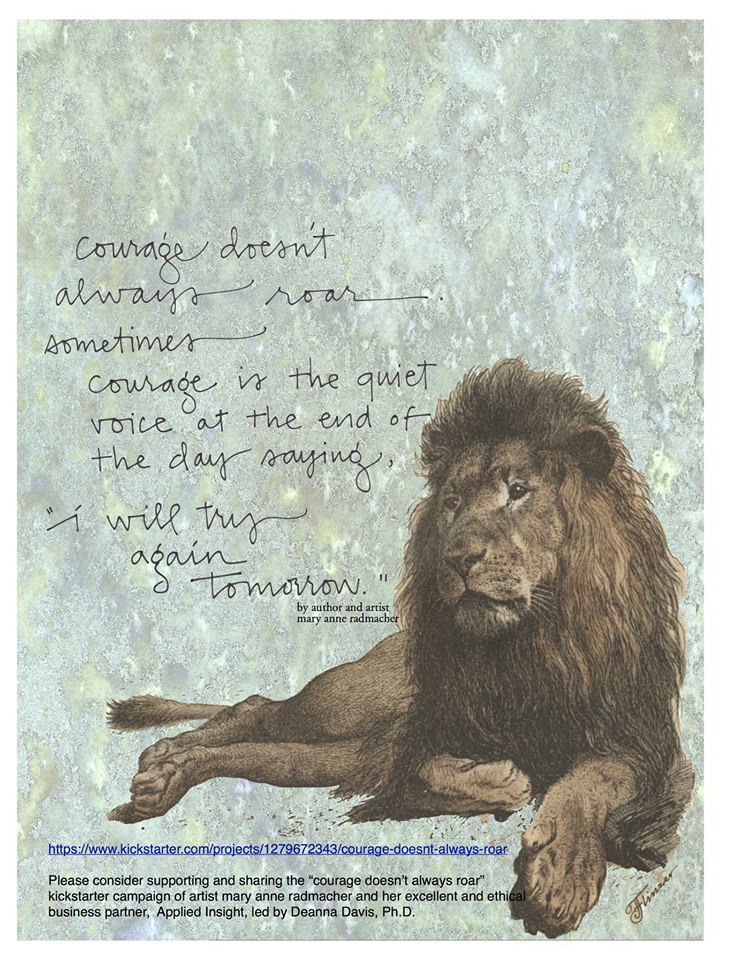 courage doesn't
always roar.
sometimes
courage is the quiet
voice at the end of
the day saying,
"i will try
again
tomorrow."
by author and artist
mary anne radmacher
https://www.kickstarter.com/projects/1279672343/courage-doesnt-always-roar
Please consider supporting and sharing the “courage doesn’t always roar”
kickstarter campaign of artist mary anne radmacher and her excellent and ethical
business partner,  Applied Insight, led by Deanna Davis, Ph.D.